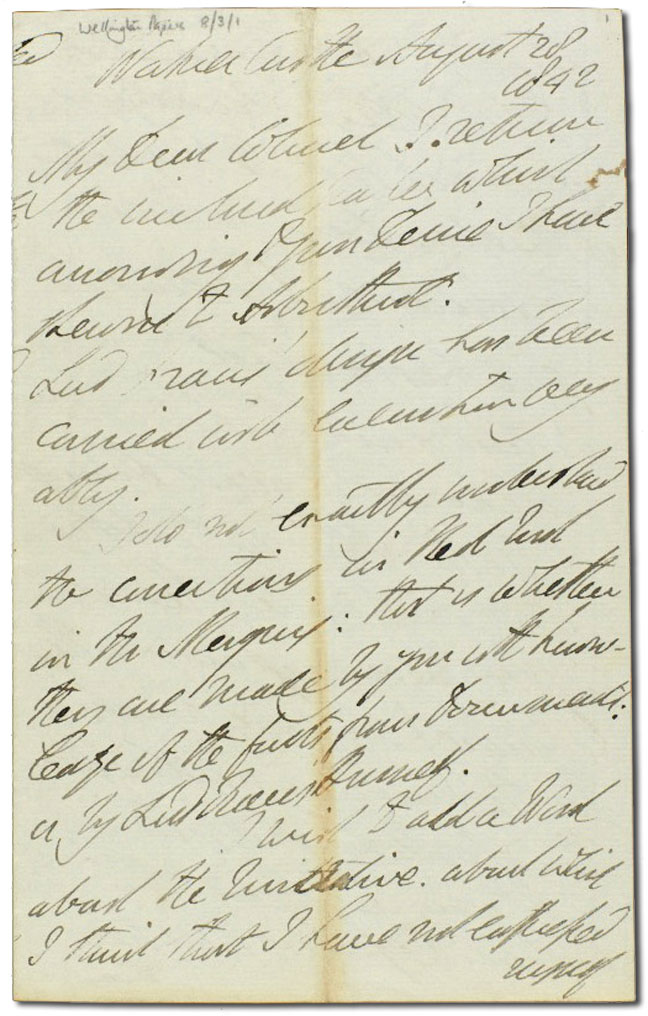 Wellington Papers 8/3/1
Walmer Castle August 28
1842
My Dear Colonel I return
the enclosed which
according to your desire I have
shewn to Arbuthnot.
Lord design has been
carried into execution very
ably.
I do not exactly understand
the corrections in Red Ink
in the Margin: that is whether
they are made by you with know-
ledge of the facts from Documents:
or by Lord himself.
I wish to add a Word
about the Narrative. about which
I think that I have not expressed
myself